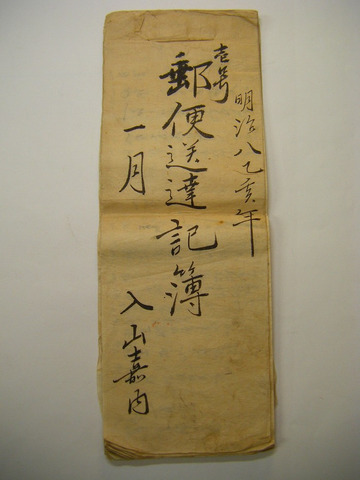 壱号
明治八乙亥年
郵便送達記簿
一月
入山嘉内